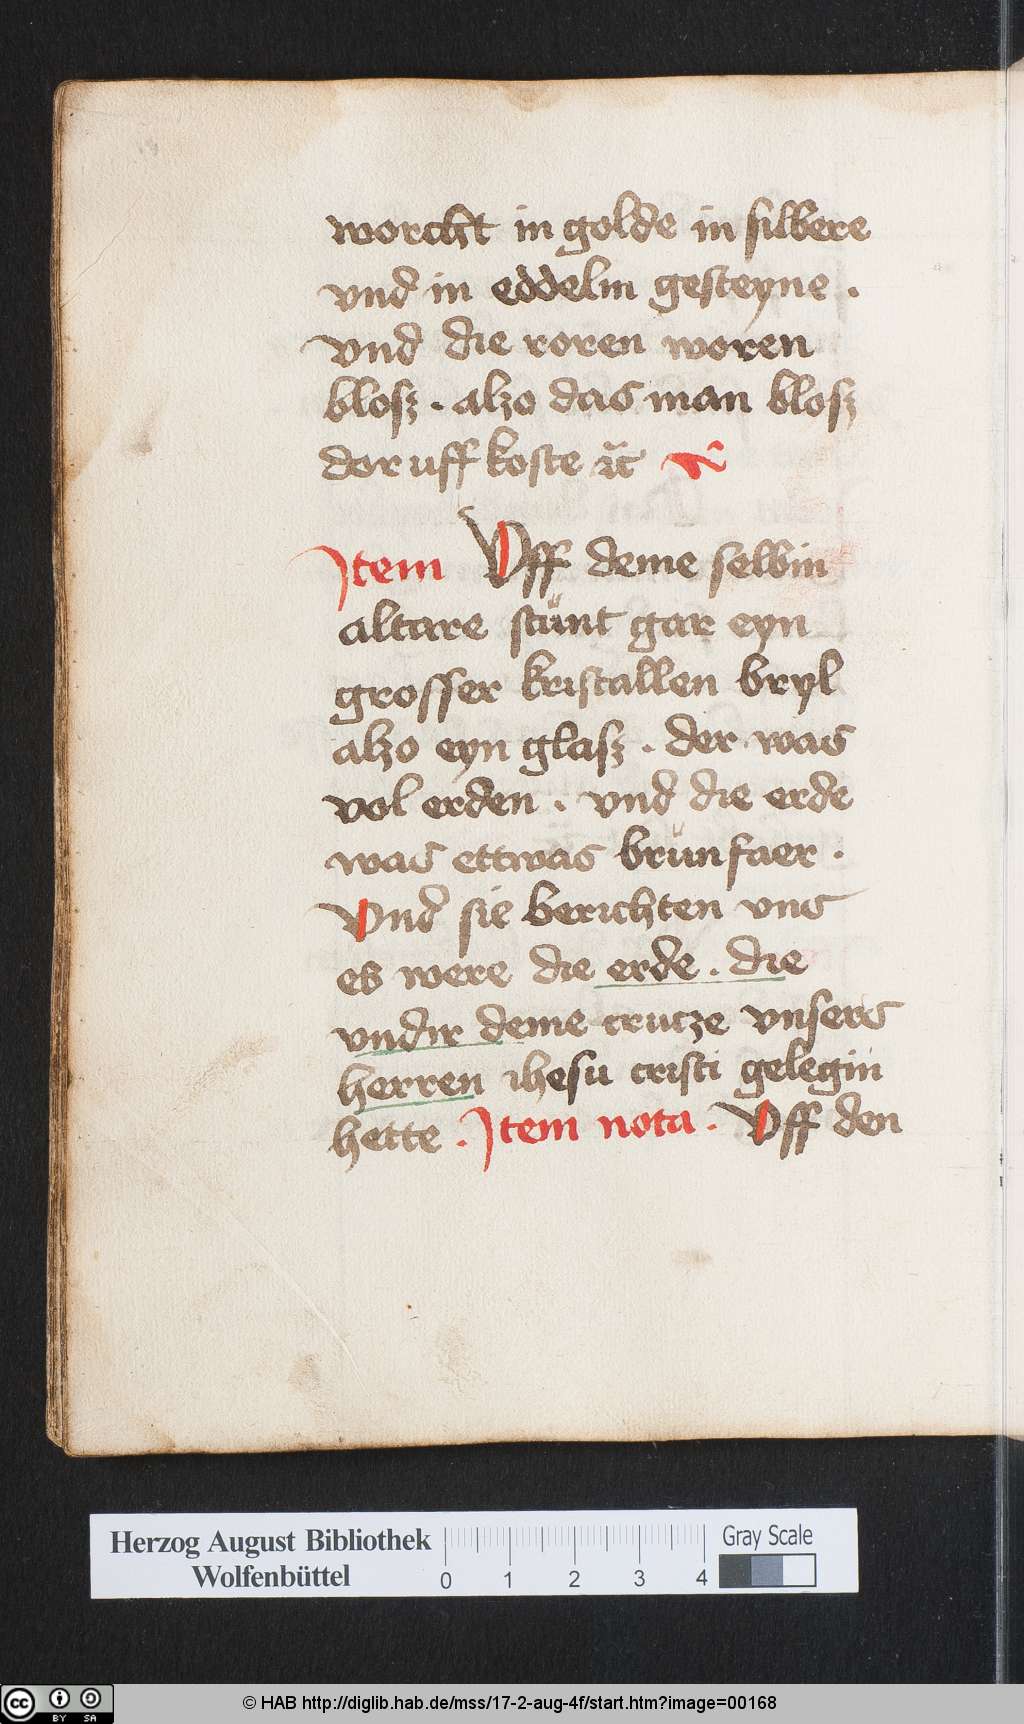 worcht in golde in silbere
vnd in eddelm gesteyne .
vnd die roren woren
blosz . alzo das man blosz
dor uff koste ac̃
Item Vff deme selbin
altare stünt gar eyn
grosser kristallen bryl
alzo eyn glasz . der was
vol erden . vnd die erde
was ettwas brünfaer .
Vnd sie berichten vns
es were die erde . die
vndir deme crucze vnsers
herren ihesu cristi gelegin
hette . Item nota . Vff den
Herzog August Bibliothek
Wolfenbüttel
0 1 2 3 4
Gray Scale
cc BY SA
© HAB http://diglib.hab.de/mss/17-2-aug-4f/start.htm?image=00168